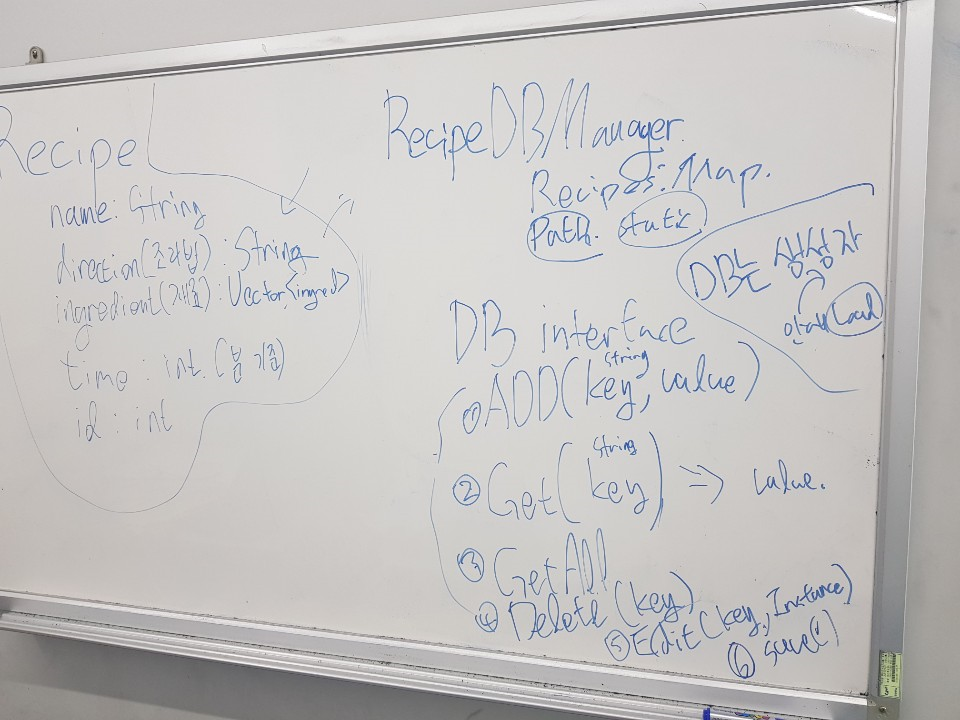 Recipe
name: String
direction(조리법) : String
ingredient(재료) : Vector<ingred>
time : int. (분 기준)
id : int
RecipeDBManager.
Recipes: Map.
Path. static
DB는 생성자
안에 Load
DB interface
① ADD(key, value)
String
② Get(key) => value.
String
③ GetAll
④ Delete (key)
⑤ Edit (key, Instance)
⑥ save()